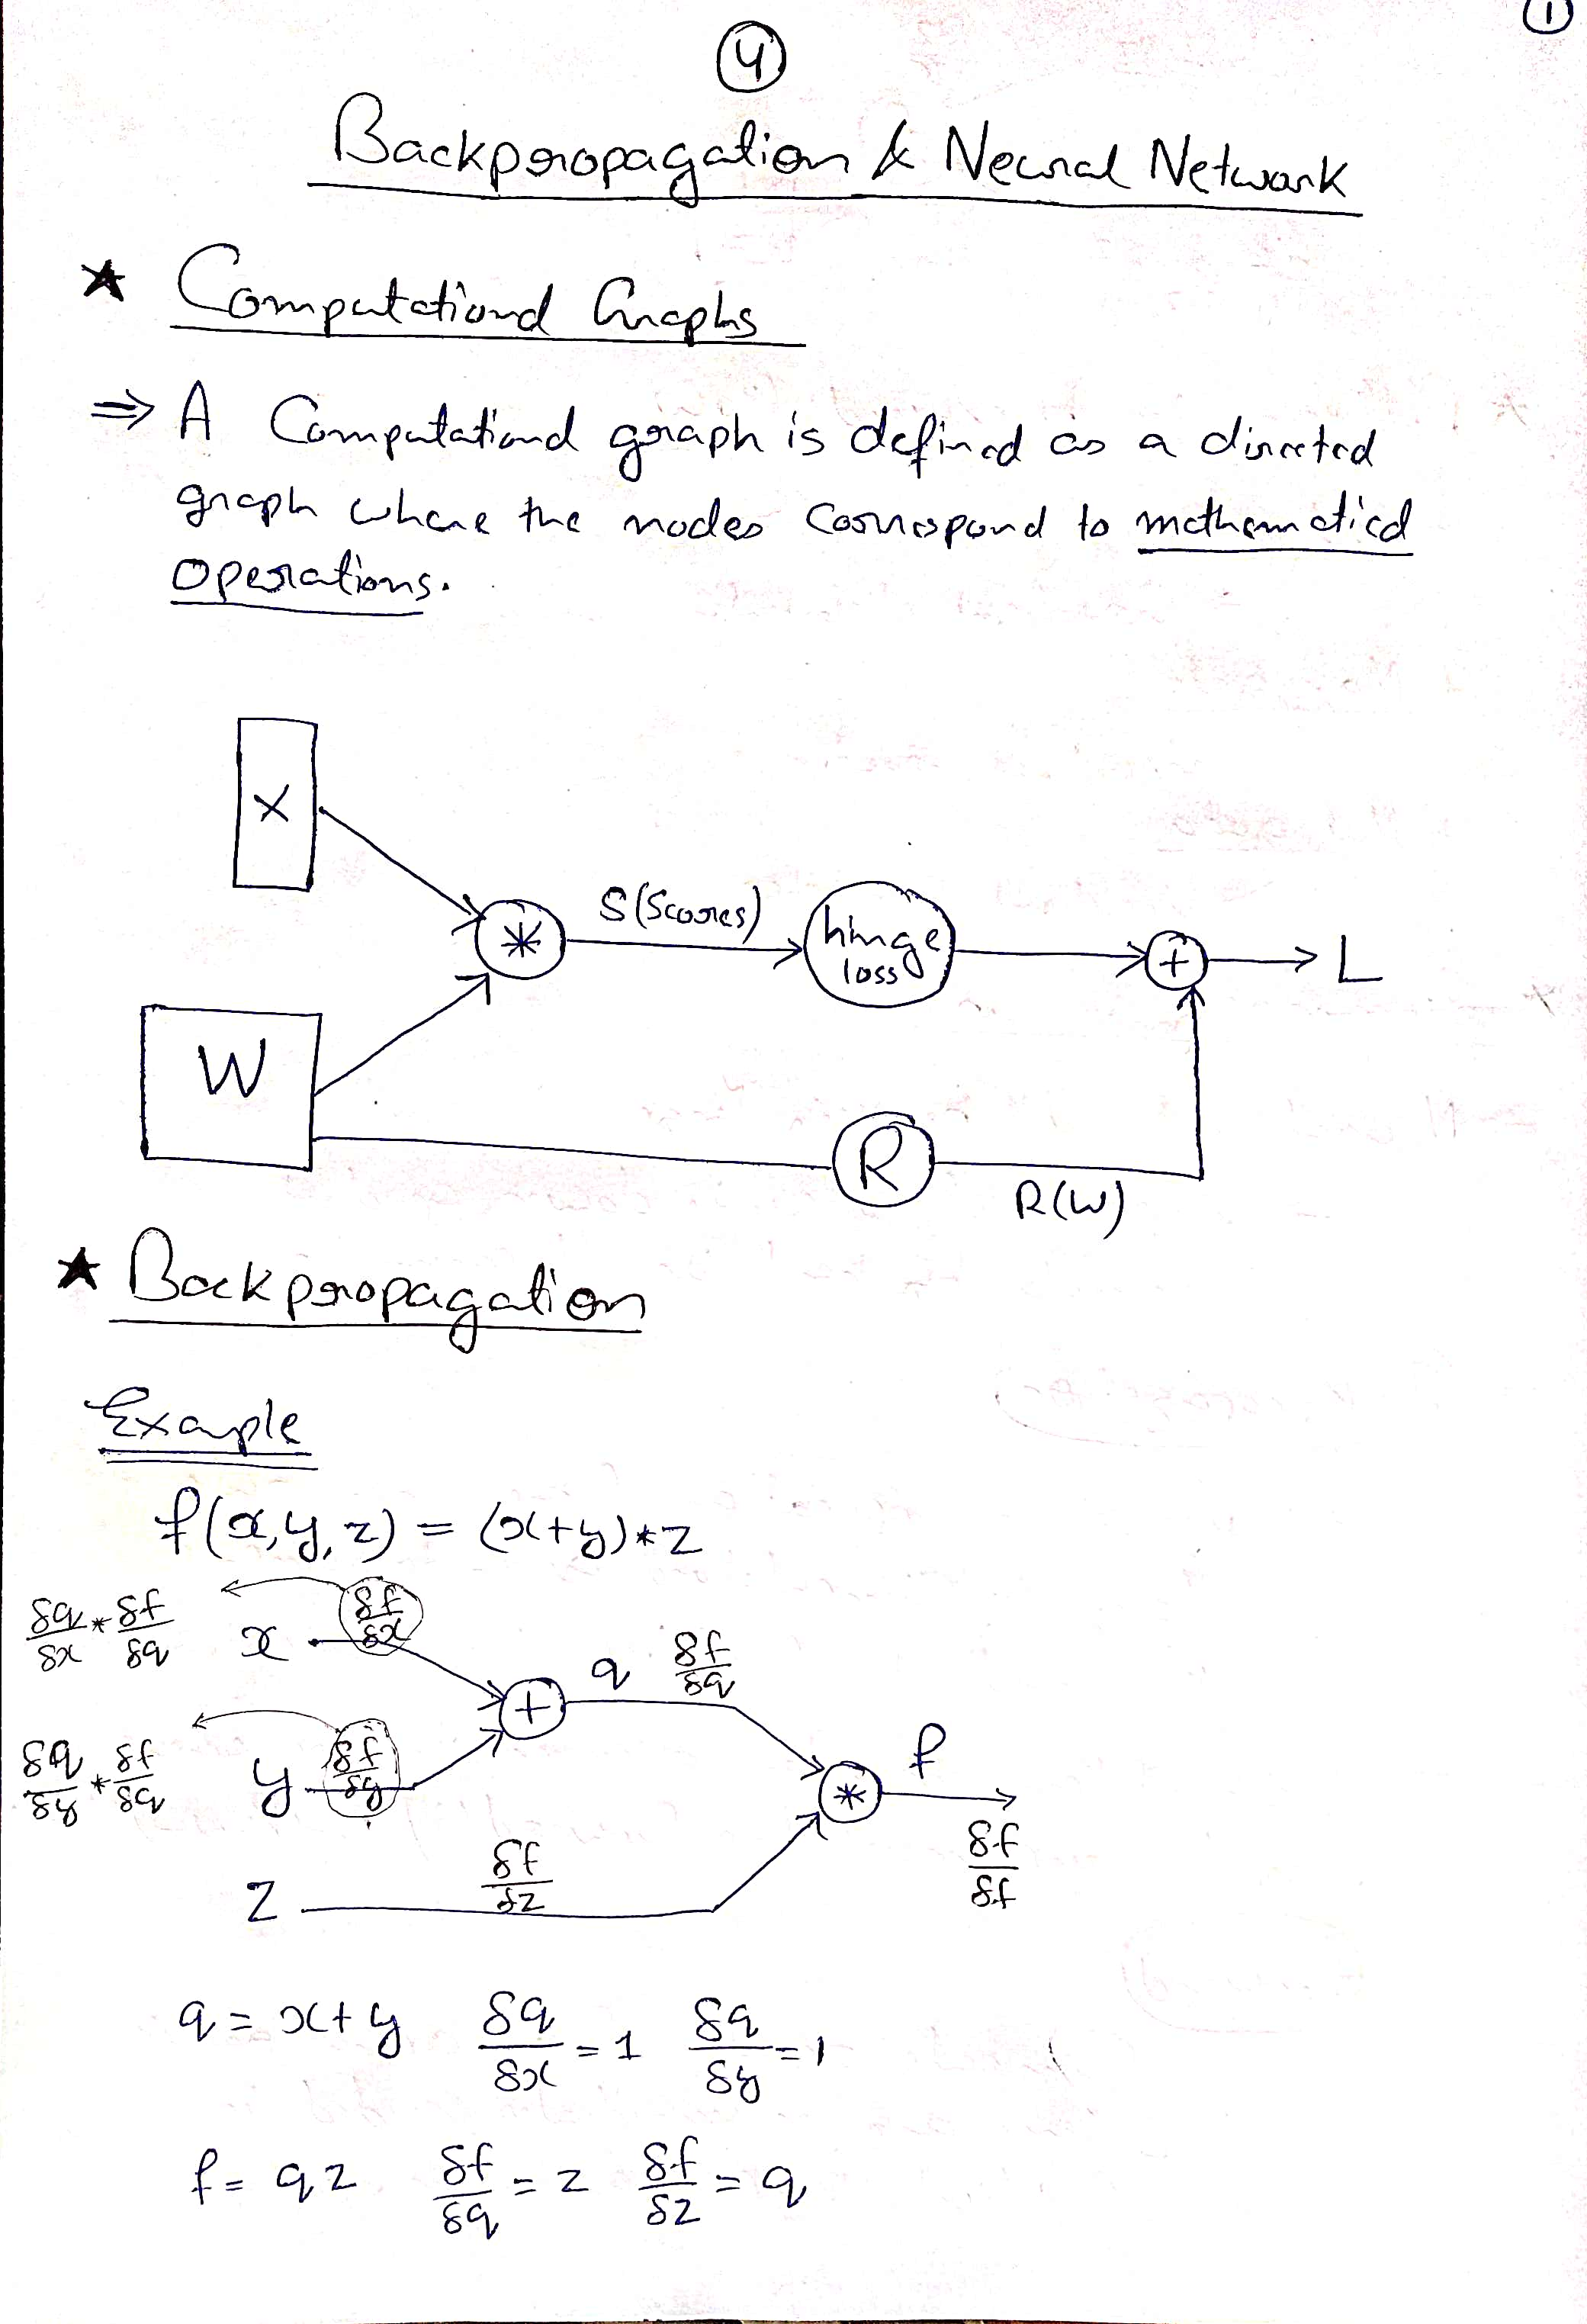 1
4
Backpropagation & Neural Network
★ Computational Graphs
⇒ A Computational graph is defined as a directed
graph where the nodes correspond to mathematical
operations.
X
S(Scores)
*
hinge
loss
+
L
W
R
R(W)
★ Backpropagation
Example
f(x,y,z) = (x+y)*z
δq/δx * δf/δq x δf/δx
q δf/δq
+
δq/δy * δf/δq y δf/δy
f
*
δf/δf
z δf/δz
q = x+y δq/δx = 1 δq/δy = 1
f = qz δf/δq = z δf/δz = q